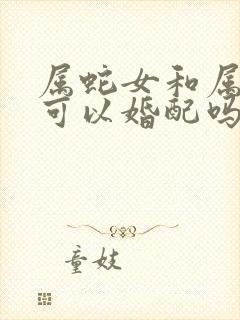 属蛇女和属
可以婚配吗
童妓